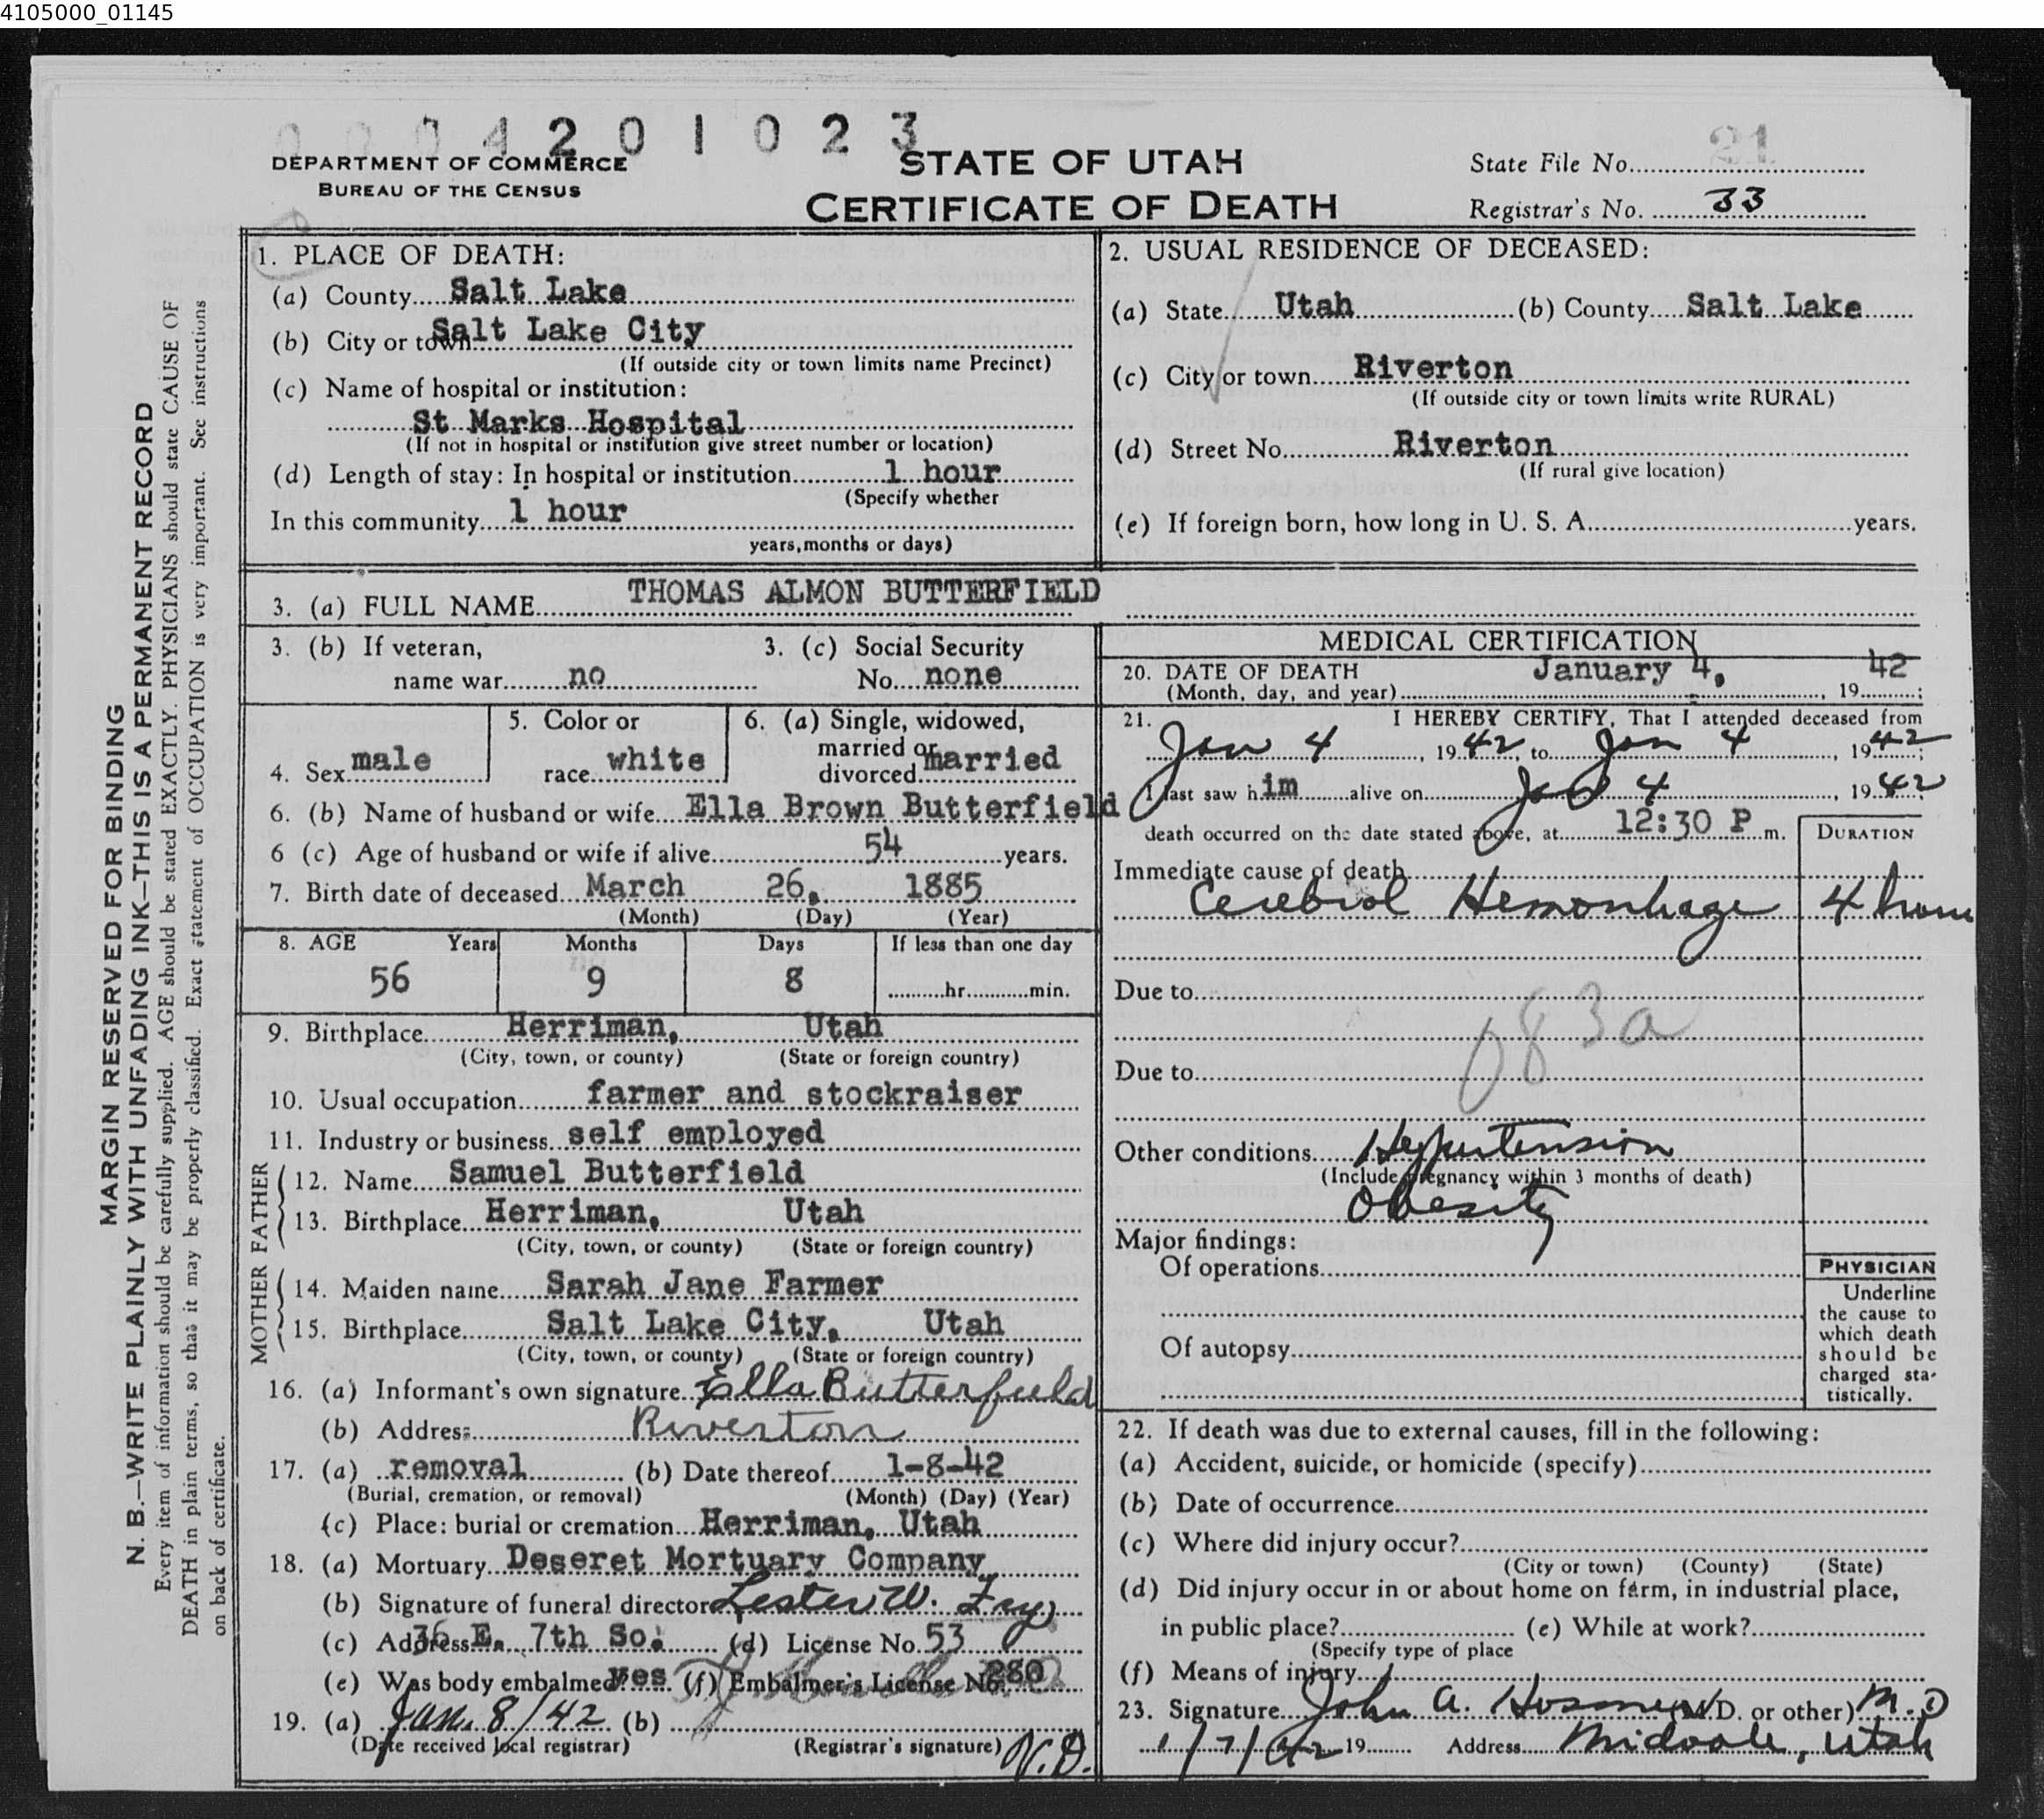 4105000_01145
0004201023
DEPARTMENT OF COMMERCE
BUREAU OF THE CENSUS
STATE OF UTAH
CERTIFICATE OF DEATH
State File No. 21
Registrar's No. 33
MARGIN RESERVED FOR BINDING
N. B.—WRITE PLAINLY WITH UNFADING INK—THIS IS A PERMANENT RECORD
Every item of information should be carefully supplied. AGE should be stated EXACTLY. PHYSICIANS should state CAUSE OF
DEATH in plain terms, so that it may be properly classified. Exact statement of OCCUPATION is very important. See instructions
on back of certificate.
1. PLACE OF DEATH:
(a) County Salt Lake
(b) City or town Salt Lake City
(If outside city or town limits name Precinct)
(c) Name of hospital or institution:
St Marks Hospital
(If not in hospital or institution give street number or location)
(d) Length of stay: In hospital or institution 1 hour
(Specify whether
In this community 1 hour
years, months or days)
2. USUAL RESIDENCE OF DECEASED:
(a) State Utah (b) County Salt Lake
(c) City or town Riverton
(If outside city or town limits write RURAL)
(d) Street No. Riverton
(If rural give location)
(e) If foreign born, how long in U. S. A. years.
3. (a) FULL NAME THOMAS ALMON BUTTERFIELD
3. (b) If veteran,
name war no
3. (c) Social Security
No. none
4. Sex male
5. Color or
race white
6. (a) Single, widowed,
married or
divorced married
6. (b) Name of husband or wife Ella Brown Butterfield
6 (c) Age of husband or wife if alive 54 years.
7. Birth date of deceased March 26, 1885
(Month) (Day) (Year)
8. AGE Years Months Days If less than one day
56 9 8 hr. min.
9. Birthplace Herriman, Utah
(City, town, or county) (State or foreign country)
10. Usual occupation farmer and stockraiser
11. Industry or business self employed
FATHER
12. Name Samuel Butterfield
13. Birthplace Herriman, Utah
(City, town, or county) (State or foreign country)
MOTHER
14. Maiden name Sarah Jane Farmer
15. Birthplace Salt Lake City, Utah
(City, town, or county) (State or foreign country)
16. (a) Informant's own signature Ella Butterfield
(b) Address Riverton
17. (a) removal (b) Date thereof 1-8-42
(Burial, cremation, or removal) (Month) (Day) (Year)
(c) Place: burial or cremation Herriman, Utah
18. (a) Mortuary Deseret Mortuary Company
(b) Signature of funeral director Lester W. Fry
(c) Address 36 E. 7th So. (d) License No. 53
(e) Was body embalmed yes (f) Embalmer's License No. 280
19. (a) Jan. 8/42 (b)
(Date received local registrar) (Registrar's signature) V.D.
MEDICAL CERTIFICATION
20. DATE OF DEATH January 4, 42
(Month, day, and year) , 19 ;
21. I HEREBY CERTIFY, That I attended deceased from
Jan 4, 1942, to Jan 4, 1942;
I last saw him alive on Jan 4, 1942;
death occurred on the date stated above, at 12:30 P m.
DURATION
Immediate cause of death
Cerebral Hemorrhage 4 hour
Due to
083a
Due to
Other conditions Hypertension
(Include pregnancy within 3 months of death)
Obesity
Major findings:
Of operations
Of autopsy
PHYSICIAN
Underline
the cause to
which death
should be
charged sta-
tistically.
22. If death was due to external causes, fill in the following:
(a) Accident, suicide, or homicide (specify)
(b) Date of occurrence
(c) Where did injury occur?
(City or town) (County) (State)
(d) Did injury occur in or about home on farm, in industrial place,
in public place? (e) While at work?
(Specify type of place
(f) Means of injury
23. Signature John A. Hosmer (M.D. or other) M.D
1/7/42 19 Address Midvale, Utah